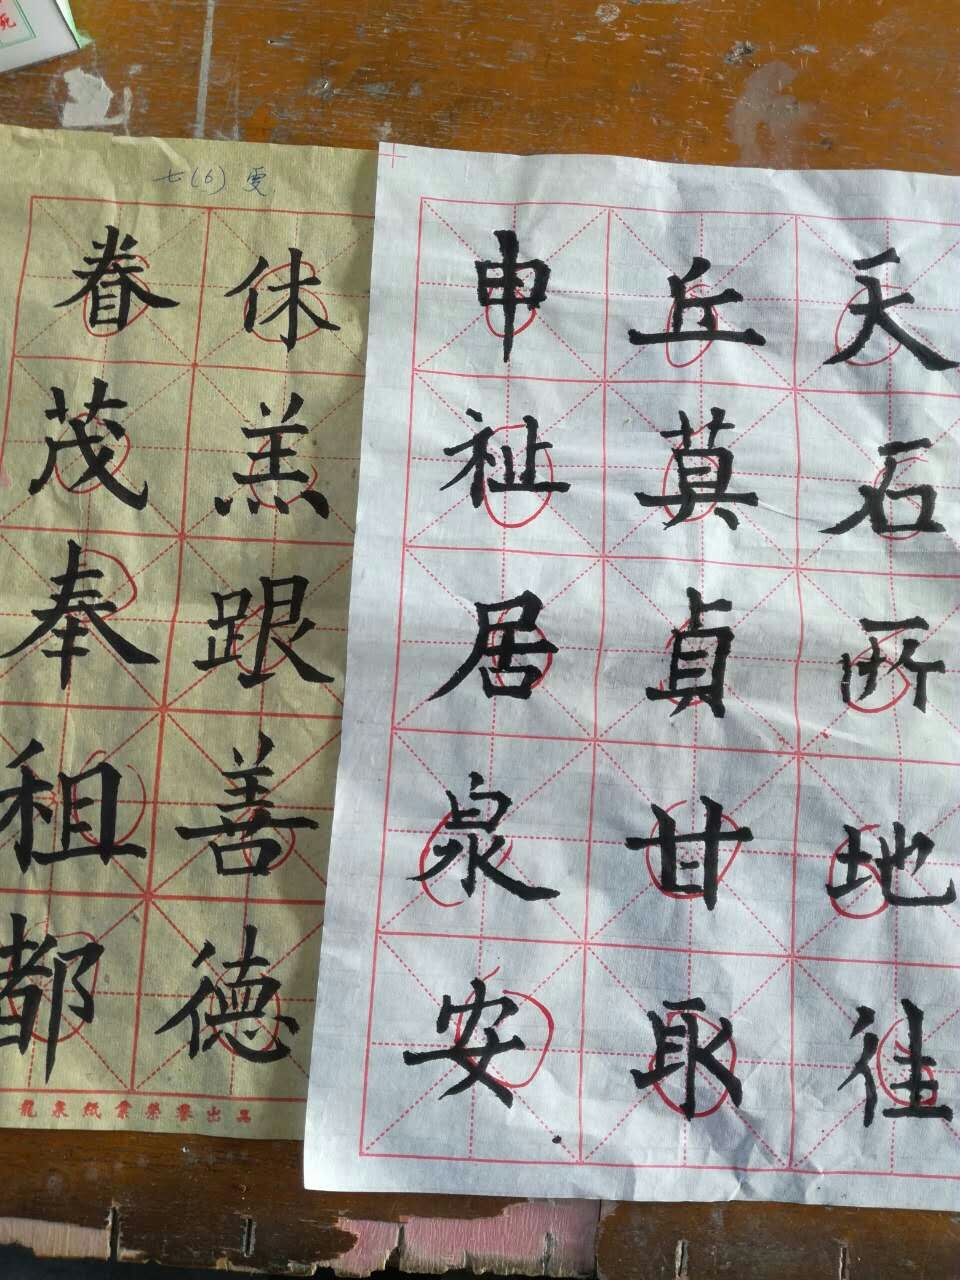 七(6) 雯
眷 休
茂 羔
奉 跟
租 善
都 德
龍泉紙業榮譽出品
申 丘 天
祉 莫 石
居 貞 所
泉 甘 地
安 取 往